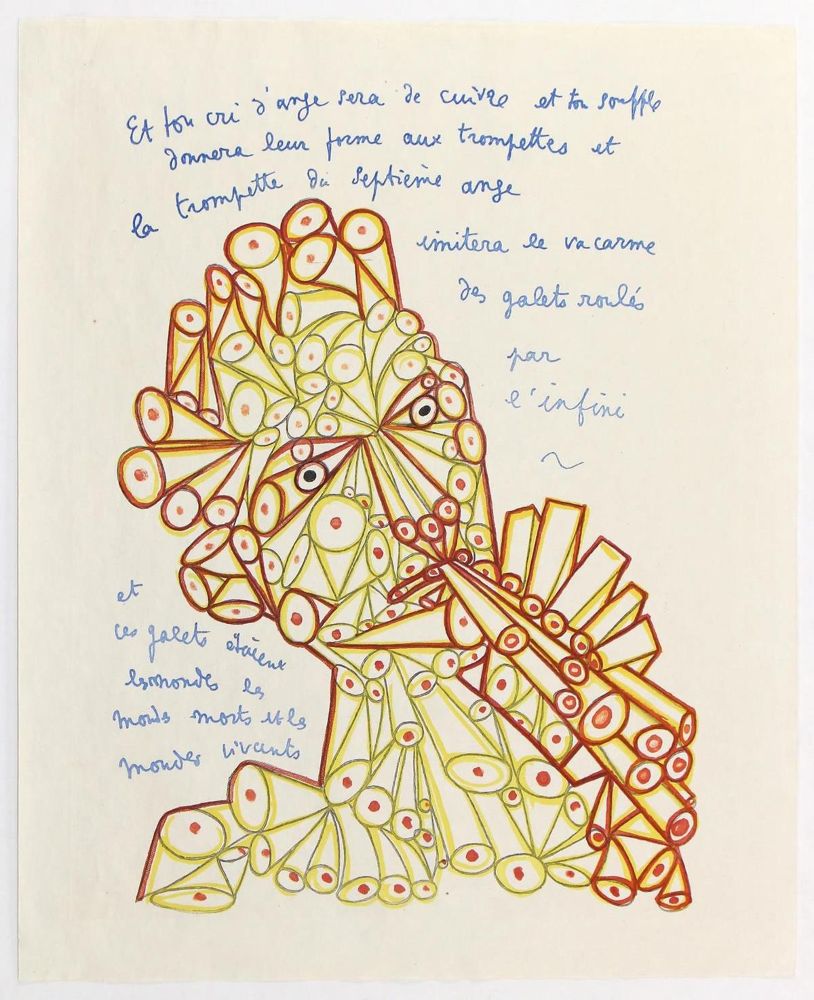 Et ton cri d'ange sera de cuivre et ton souffle
donnera leur forme aux trompettes et
la trompette du septième ange
imitera le vacarme
des galets roulés
par
l'infini
et
ces galets étaient
les mondes les
monds morts et les
mondes vivants